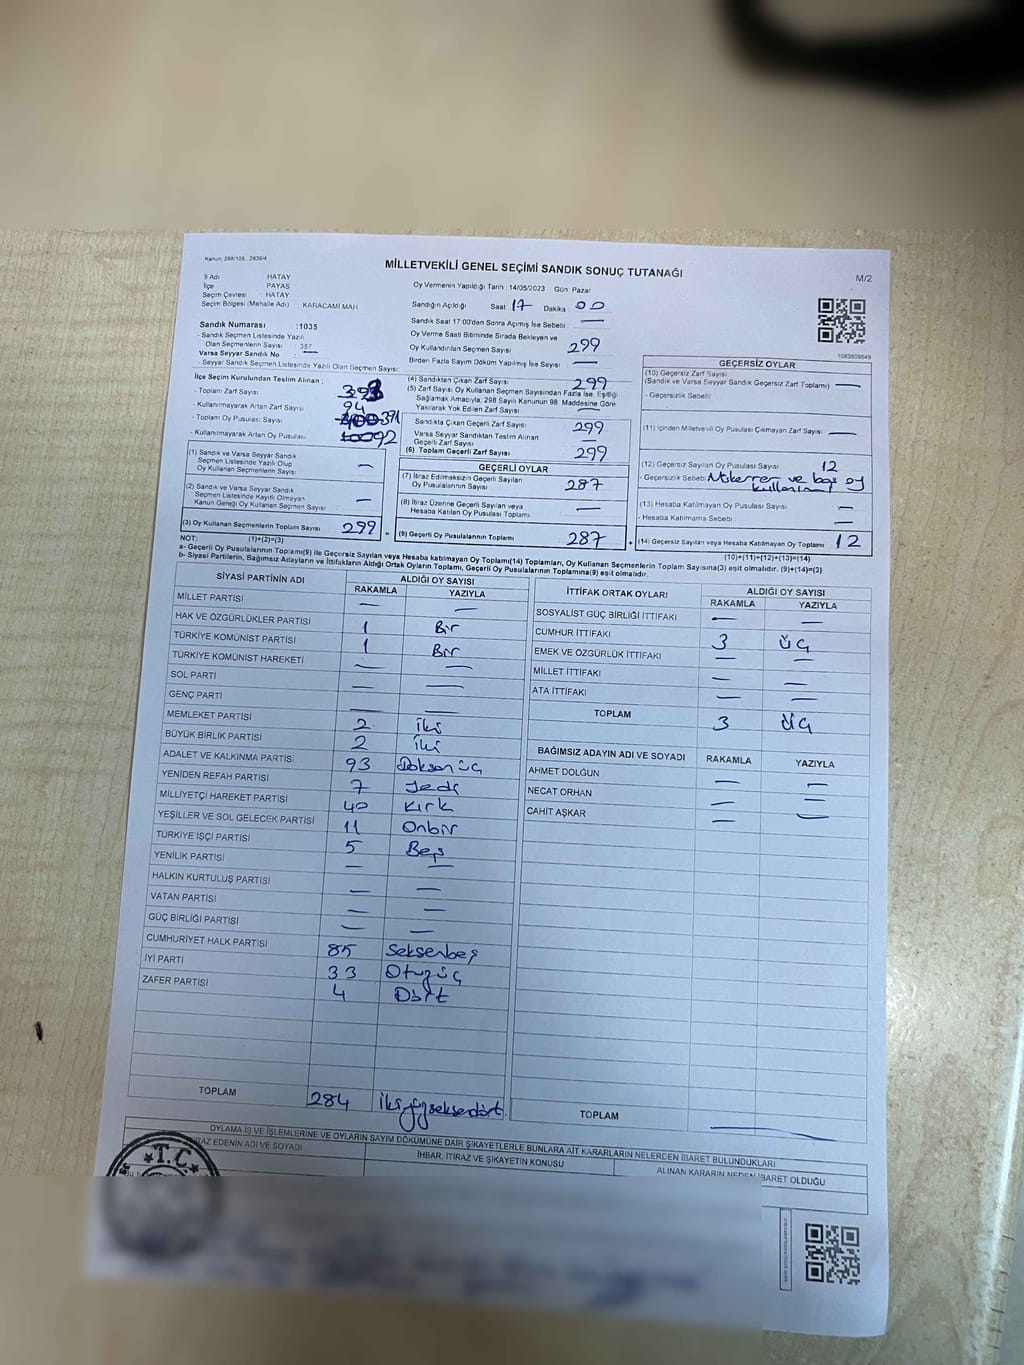 Kanun: 298/105 , 2839/4
MİLLETVEKİLİ GENEL SEÇİMİ SANDIK SONUÇ TUTANAĞI
M/2
İl Adı : HATAY
İlçe : PAYAS
Seçim Çevresi : HATAY
Seçim Bölgesi (Mahalle Adı) : KARACAMİ MAH
Sandık Numarası :1035
- Sandık Seçmen Listesinde Yazılı
Olan Seçmenlerin Sayısı : 357
Varsa Seyyar Sandık No : —
- Seyyar Sandık Seçmen Listesinde Yazılı Olan Seçmen Sayısı:
Oy Vermenin Yapıldığı Tarih : 14/05/2023 Gün: Pazar
Sandığın Açıldığı Saat 17 Dakika : 00
Sandık Saat 17:00'den Sonra Açılmış İse Sebebi : —
Oy Verme Saati Bitiminde Sırada Bekleyen ve
Oy Kullandırılan Seçmen Sayısı 299
Birden Fazla Sayım Döküm Yapılmış İse Sayısı : —
1083809549
İlçe Seçim Kurulundan Teslim Alınan ;
- Toplam Zarf Sayısı
- Kullanılmayarak Artan Zarf Sayısı 94
- Toplam Oy Pusulası Sayısı 400 391
- Kullanılmayarak Artan Oy Pusulası 100 92
(1) Sandık ve Varsa Seyyar Sandık
Seçmen Listesinde Yazılı Olup
Oy Kullanan Seçmenlerin Sayısı —
(2) Sandık ve Varsa Seyyar Sandık
Seçmen Listesinde Kayıtlı Olmayan
Kanun Gereği Oy Kullanan Seçmen Sayısı —
(3) Oy Kullanan Seçmenlerin Toplam Sayısı 299 =
(1)+(2)=(3)
(4) Sandıktan Çıkan Zarf Sayısı 299
(5) Zarf Sayısı Oy Kullanan Seçmen Sayısından Fazla İse, Eşitliği
Sağlamak Amacıyla, 298 Sayılı Kanunun 98. Maddesine Göre
Yakılarak Yok Edilen Zarf Sayısı —
Sandıkta Çıkan Geçerli Zarf Sayısı 299
Varsa Seyyar Sandıktan Teslim Alınan
Geçerli Zarf Sayısı —
(6) Toplam Geçerli Zarf Sayısı 299
GEÇERLİ OYLAR
(7) İtiraz Edilmeksizin Geçerli Sayılan
Oy Pusulalarının Sayısı 287
(8) İtiraz Üzerine Geçerli Sayılan veya
Hesaba Katılan Oy Pusulası Toplamı —
(9) Geçerli Oy Pusulalarının Toplamı 287 +
GEÇERSİZ OYLAR
(10) Geçersiz Zarf Sayısı
(Sandık ve Varsa Seyyar Sandık Geçersiz Zarf Toplamı) —
- Geçersizlik Sebebi
(11) İçinden Milletvekili Oy Pusulası Çıkmayan Zarf Sayısı —
(12) Geçersiz Sayılan Oy Pusulası Sayısı 12
- Geçersizlik Sebebi: Mükerrer ve boş oy
(13) Hesaba Katılmayan Oy Pusulası Sayısı —
- Hesaba Katılmama Sebebi : —
(14) Geçersiz Sayılan veya Hesaba Katılmayan Oy Toplamı 12
(10)+(11)+(12)+(13)=(14)
NOT:
a- Geçerli Oy Pusulalarının Toplamı(9) ile Geçersiz Sayılan veya Hesaba katılmayan Oy Toplamı(14) Toplamları, Oy Kullanan Seçmenlerin Toplam Sayısına(3) eşit olmalıdır. (9)+(14)=(3)
b- Siyasi Partilerin, Bağımsız Adayların ve İttifakların Aldığı Ortak Oyların Toplamı, Geçerli Oy Pusulalarının Toplamına(9) eşit olmalıdır.
SİYASİ PARTİNİN ADI ALDIĞI OY SAYISI
RAKAMLA YAZIYLA
MİLLET PARTİSİ — —
HAK VE ÖZGÜRLÜKLER PARTİSİ 1 Bir
TÜRKİYE KOMÜNİST PARTİSİ 1 Bir
TÜRKİYE KOMÜNİST HAREKETİ — —
SOL PARTİ — —
GENÇ PARTİ — —
MEMLEKET PARTİSİ 2 iki
BÜYÜK BİRLİK PARTİSİ 2 iki
ADALET VE KALKINMA PARTİSİ 93 Doksan üç
YENİDEN REFAH PARTİSİ 7 Yedi
MİLLİYETÇİ HAREKET PARTİSİ 40 Kırk
YEŞİLLER VE SOL GELECEK PARTİSİ 11 Onbir
TÜRKİYE İŞÇİ PARTİSİ 5 Beş
YENİLİK PARTİSİ — —
HALKIN KURTULUŞ PARTİSİ — —
VATAN PARTİSİ — —
GÜÇ BİRLİĞİ PARTİSİ — —
CUMHURİYET HALK PARTİSİ 85 Seksenbeş
İYİ PARTİ 33 Otuzüç
ZAFER PARTİSİ 4 Dört
TOPLAM 284 ikiyüzseksendört
İTTİFAK ORTAK OYLARI ALDIĞI OY SAYISI
RAKAMLA YAZIYLA
SOSYALİST GÜÇ BİRLİĞİ İTTİFAKI — —
CUMHUR İTTİFAKI 3 üç
EMEK VE ÖZGÜRLÜK İTTİFAKI — —
MİLLET İTTİFAKI — —
ATA İTTİFAKI — —
TOPLAM 3 üç
BAĞIMSIZ ADAYIN ADI VE SOYADI RAKAMLA YAZIYLA
AHMET DOLĞUN — —
NECAT ORHAN — —
CAHİT AŞKAR — —
TOPLAM —
OYLAMA İŞ VE İŞLEMLERİNE VE OYLARIN SAYIM DÖKÜMÜNE DAİR ŞİKAYETLERLE BUNLARA AİT KARARLARIN NELERDEN İBARET BULUNDUKLARI
İRAZ EDENİN ADI VE SOYADI
İHBAR, İTİRAZ VE ŞİKAYETİN KONUSU
ALINAN KARARIN NEDEN İBARET OLDUĞU
T.C